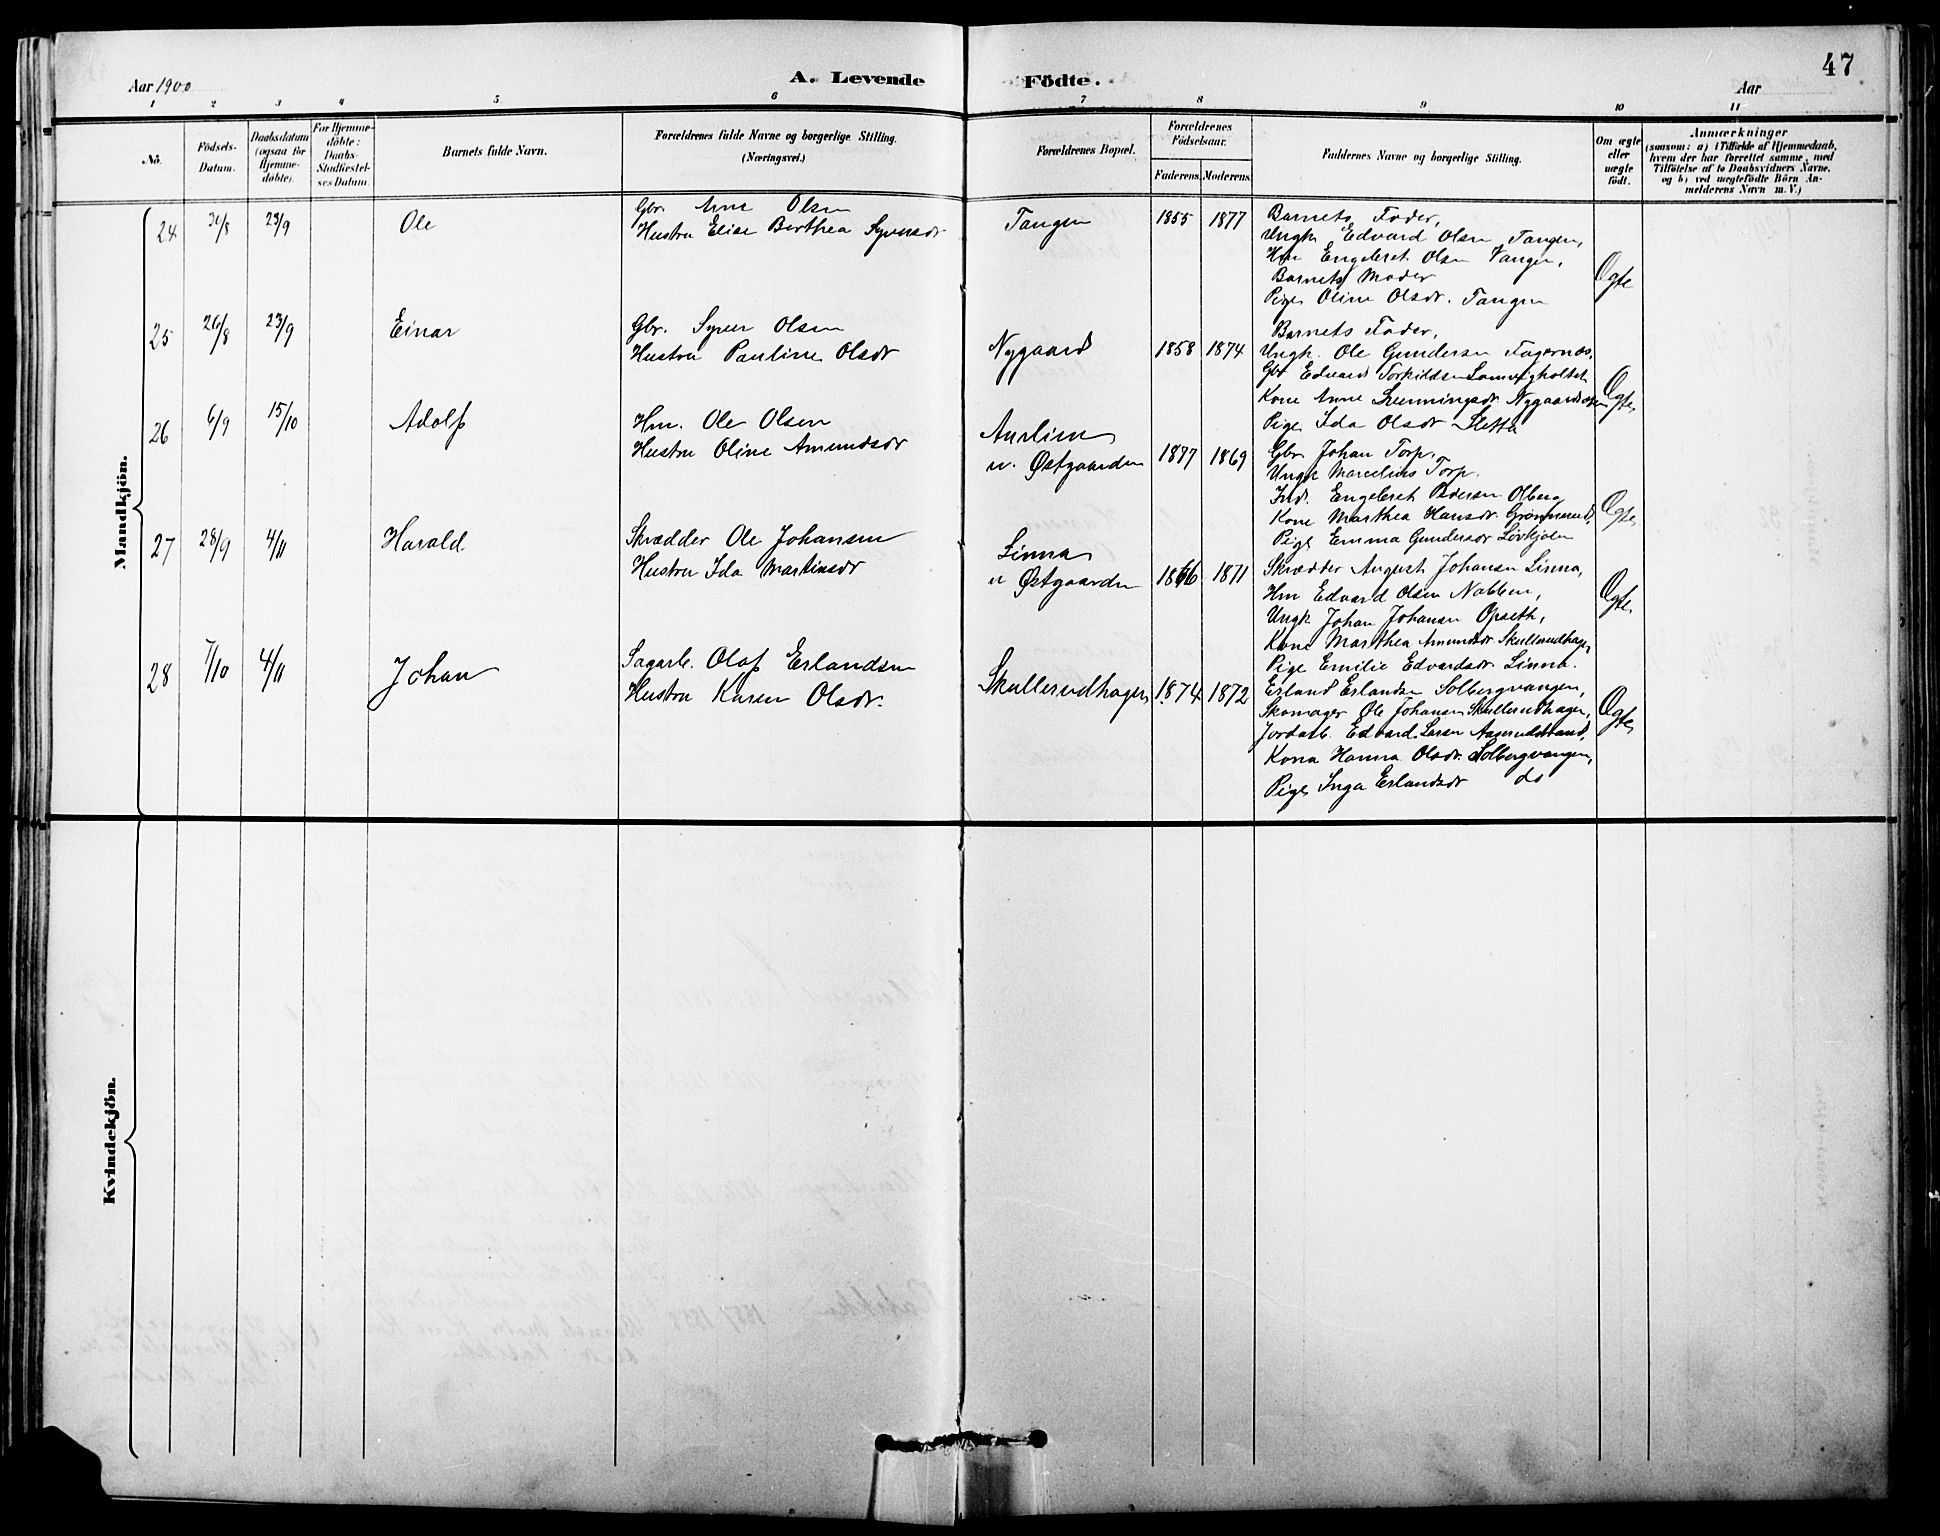 47
Aar 1900
A. Levende Födte.
Aar
1 2 3 4 5 6 7 8 9 10 11
No.
Födsels-Datum.
Daabsdatum (ogsaa for Hjemme-döbte).
For Hjemme-döbte: Daabs-Stadfæstel-ses Datum.
Barnets fulde Navn.
Forældrenes fulde Navne og borgerlige Stilling.
(Næringsvei.)
Forældrenes Bopæl.
Forældrenes Födselsaar.
Faderens. Moderens.
Faddernes Navne og borgerlige Stilling.
Om ægte eller uægte födt.
Anmærkninger
(saasom: a) i Tilfælde af Hjemmedaab,
hvem der har forrettet samme, med
Tilföielse af to Daabsvidners Navne,
og b) ved uægtefödte Börn An-
melderens Navn m. V.)
Mandkjön.
24 30/8 23/9 Ole
Gbr. Arne Olsen
Hustru Elise Berthea Syversdr
Tangen 1855 1877
Barnets Fader,
Ungk. Edvard Olsen Tangen,
Hm Engebret Olsen Tangen,
Barnets Moder
Pige Oline Olsdr. Tangen
Ægte
25 26/8 23/9 Einar
Gbr. Syver Olsen
Hustru Pauline Olsdr
Nygaard 1858 1874
Barnets Fader,
Ungk. Ole Gundersen Fagernæs,
Gbr Edvard Torkildsen
Kone Anne Nygaards
Pige Ida Olsdr Sletta
Ægte
26 6/9 15/10 Adolf
Hm. Ole Olsen
Hustru Oline Amundsdr
u. Østgaarden 1877 1869
Gbr Johan Torp.
Ungk Marcelius Torp.
Ind. Engebret Olberg
Kone Marthea Hansdr. Grönnerud,
Pige Emma Gundersdr Lövhjolen
Ægte
27 28/9 4/11 Harald
Skrædder Ole Johansen
Hustru Ida Martinsdr
Linna
u Østgaarden 1866 1871
Skrædder August Johansen Linna,
Hm Edvard Olsen Nabben,
Ungk Johan Johansen Opseth,
Kone Marthea Amundsdr Skullerudhagen
Pige Emilie Edvardsdr. Linna.
Ægte
28 7/10 4/11 Johan
Sagarb. Olaf Erlandsen
Hustru Karen Olsdr.
Skullerudhagen 1874 1872
Erland Erlandsen Solbergvangen,
Skomager Ole Johansen Skullerudhagen,
Jordarb. Edvard Larsen
Kone Hanna Olsdr. Solbergvangen,
Pige Inga Erlandsdr do
Ægte
Kvindekjön.